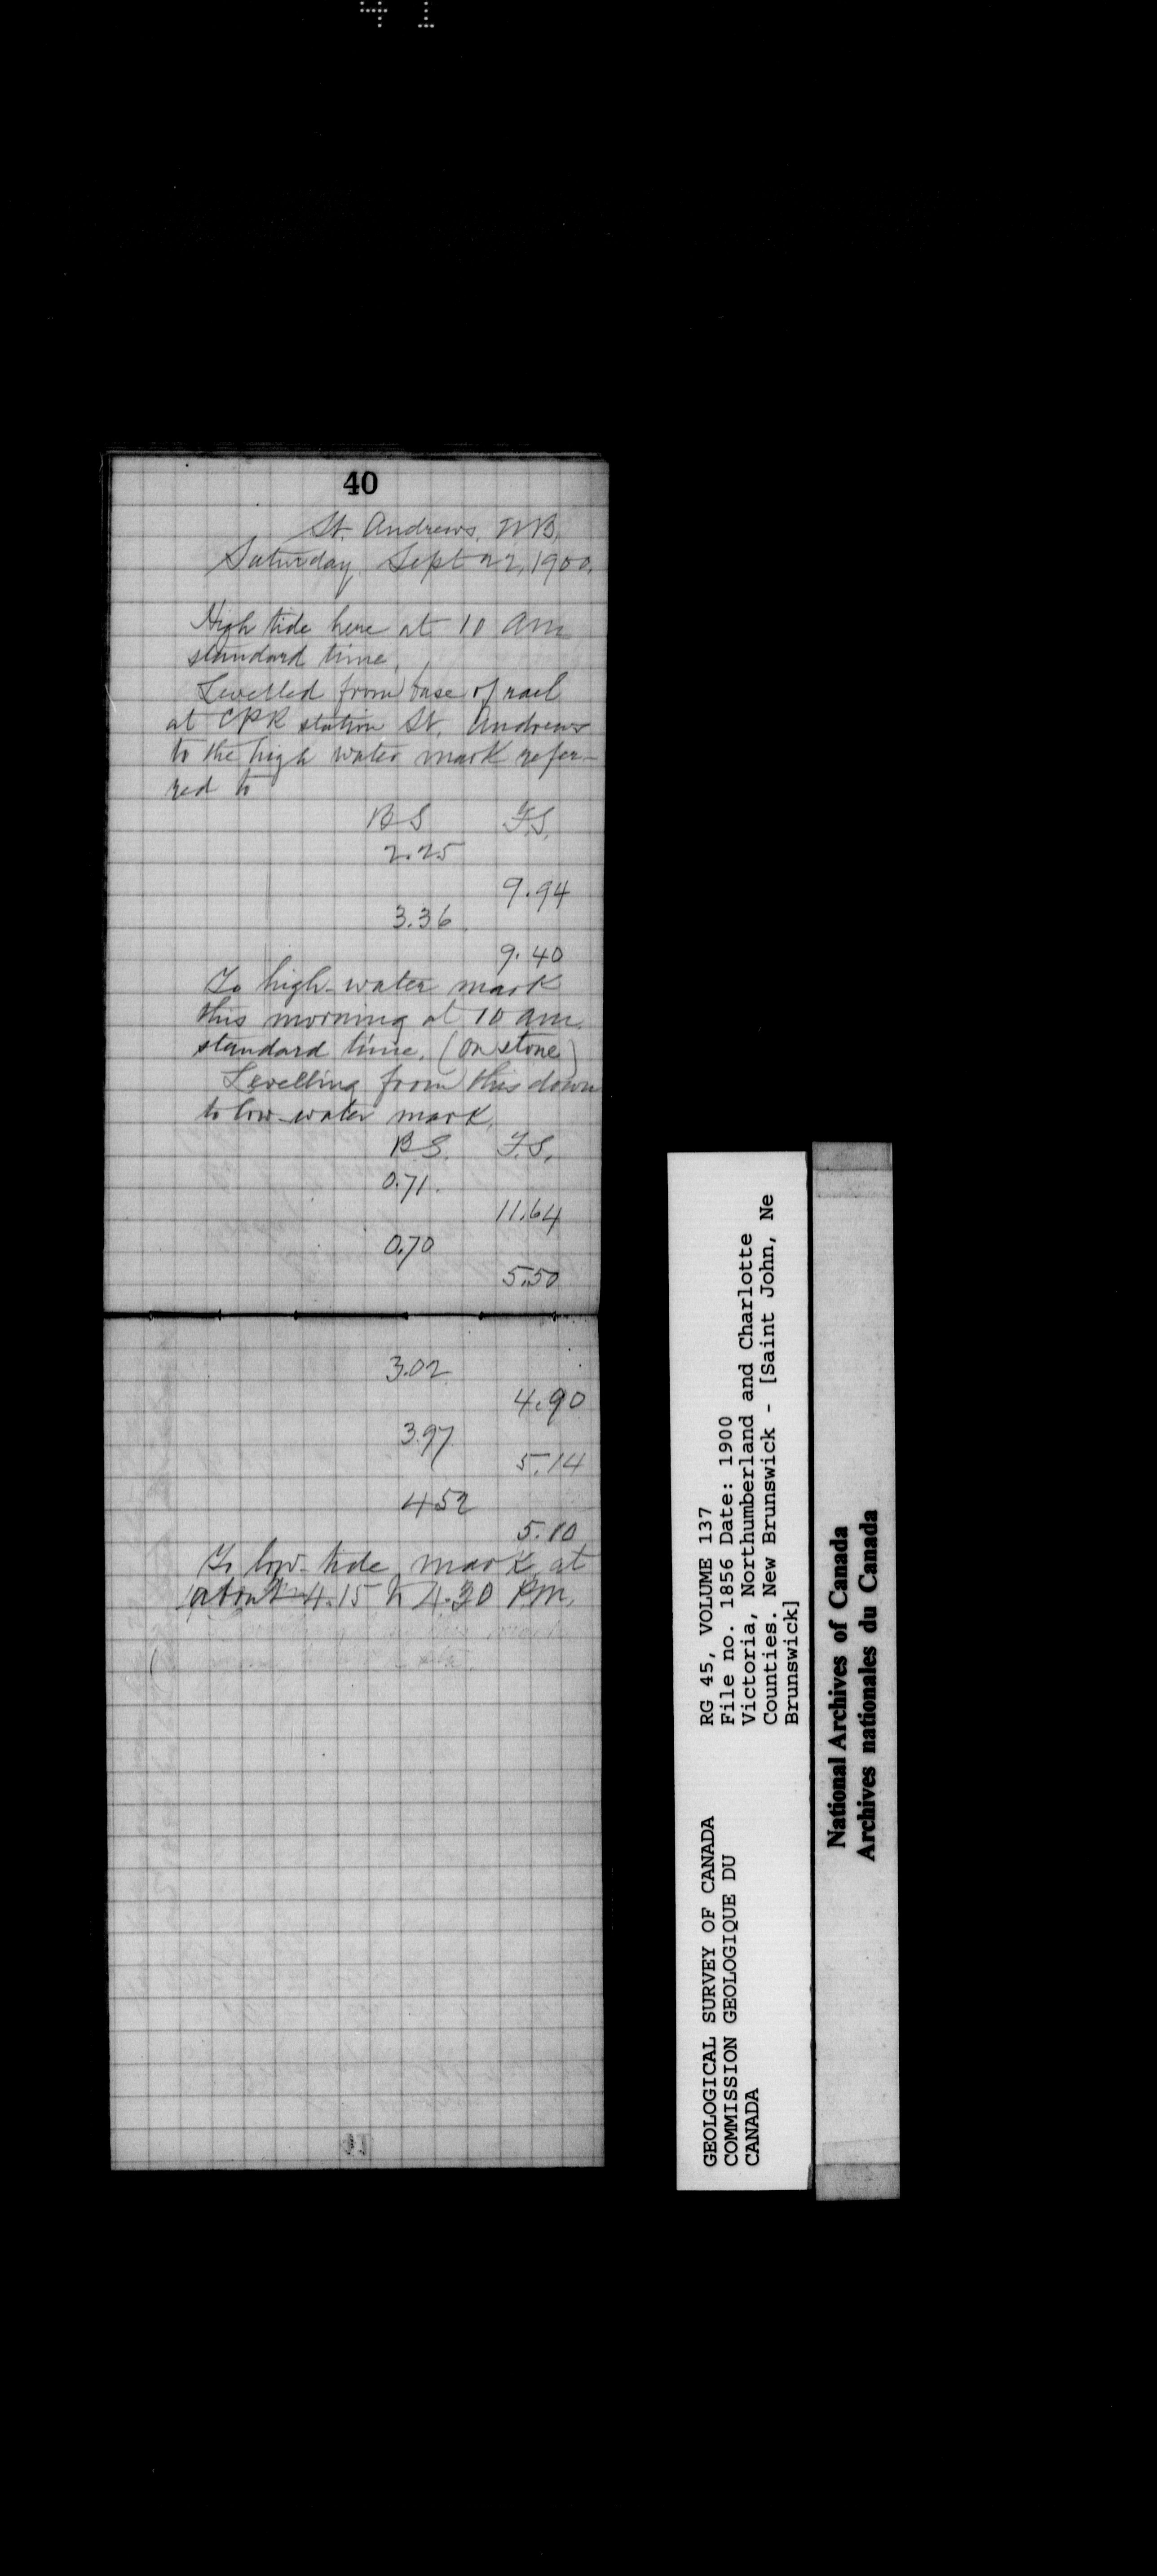 41
40
St. Andrews, N.B.
Saturday Sept 22, 1900.
High tide here at 10 am
standard time.
Levelled from base of rail
at CPR station St. Andrews
to the high water mark refer-
red to
BS F.S.
2.25
9.94
3.36
9.40
To high-water mark
this morning at 10 am.
standard time. (on stone)
Levelling from this down
to low-water mark.
B.S. F.S.
0.71.
11.64
0.70
5.50
3.02
4.90
3.97
5.14
4.52
5.10
To low-tide mark at
about 4.15 to 4.30 P.m.
GEOLOGICAL SURVEY OF CANADA
COMMISSION GEOLOGIQUE DU
CANADA
RG 45, VOLUME 137
File no. 1856 Date: 1900
Victoria, Northumberland and Charlotte
Counties. New Brunswick - [Saint John, Ne
Brunswick]
National Archives of Canada
Archives nationales du Canada